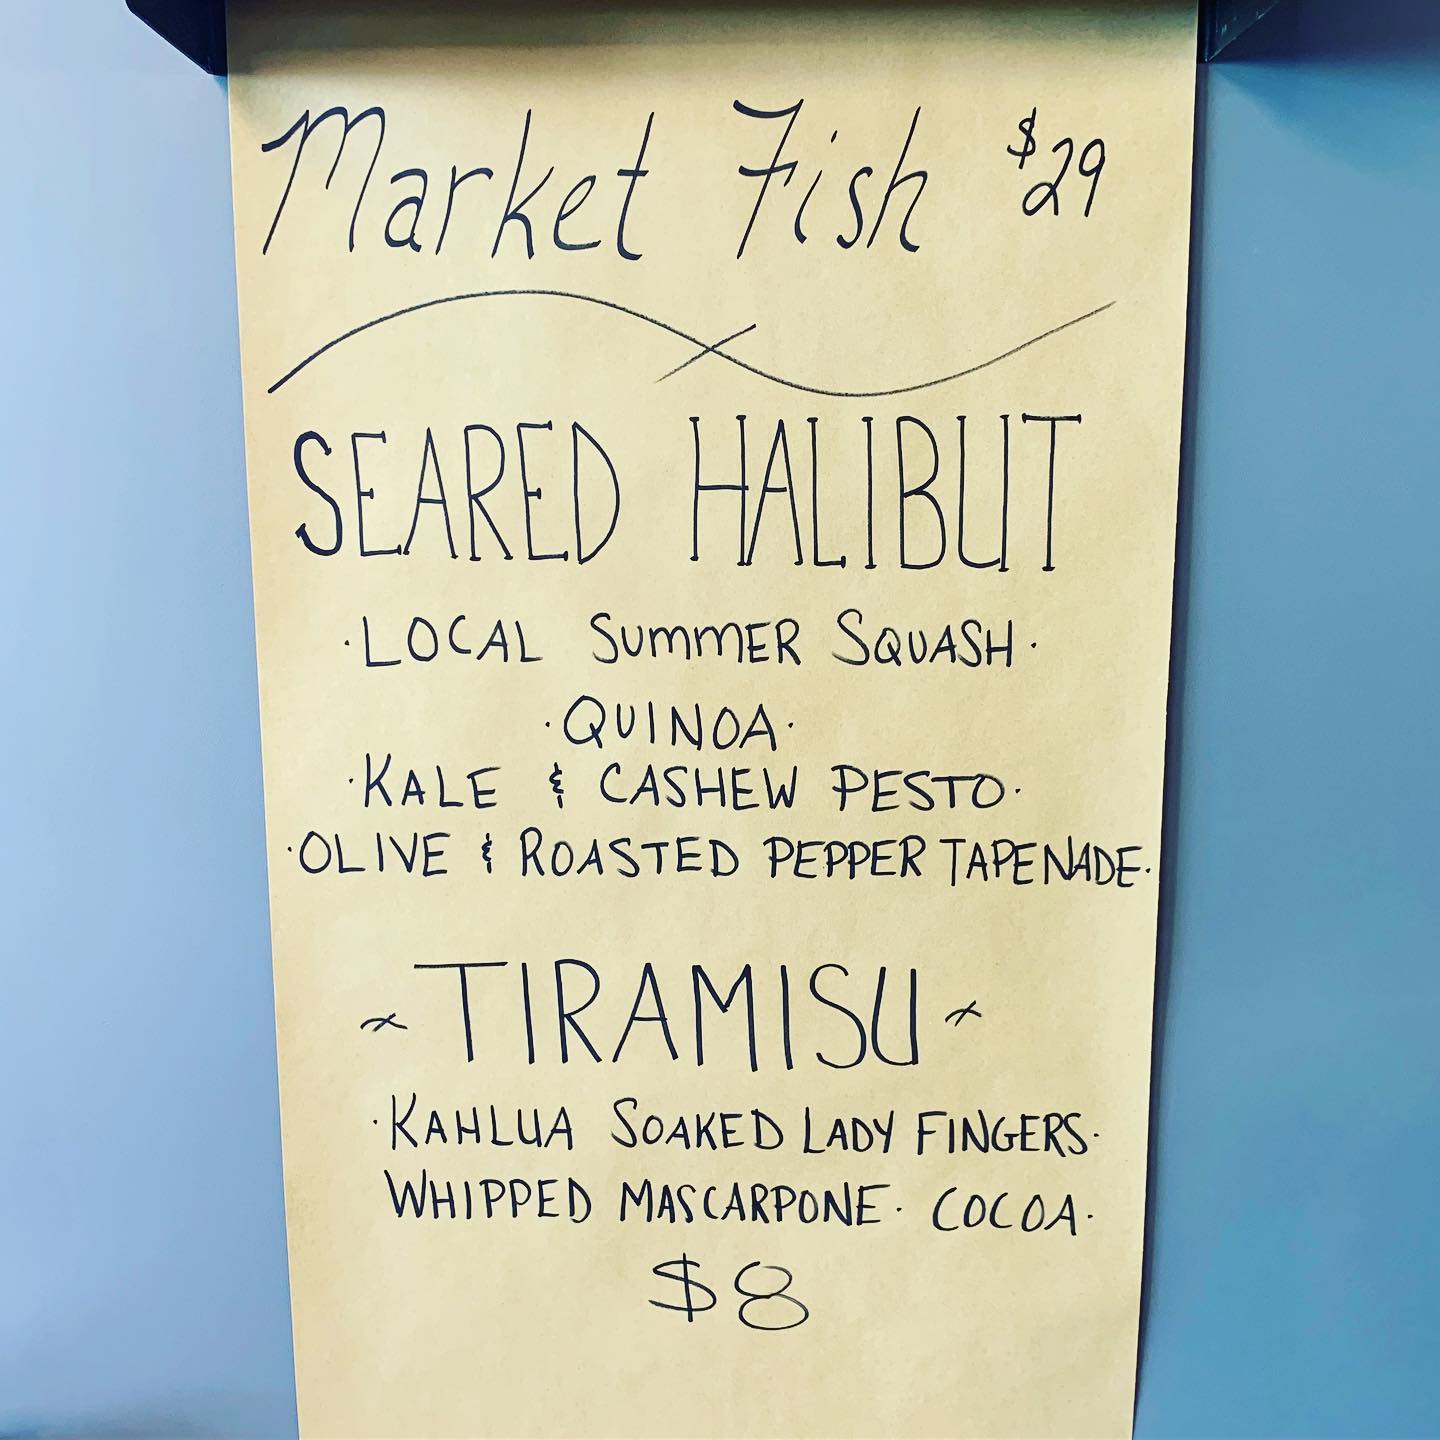 Market Fish $29
SEARED HALIBUT
·LOCAL SUMMER SQUASH·
·QUINOA·
·KALE & CASHEW PESTO·
·OLIVE & ROASTED PEPPER TAPENADE·
~TIRAMISU~
·KAHLUA SOAKED LADY FINGERS·
WHIPPED MASCARPONE· COCOA·
$8